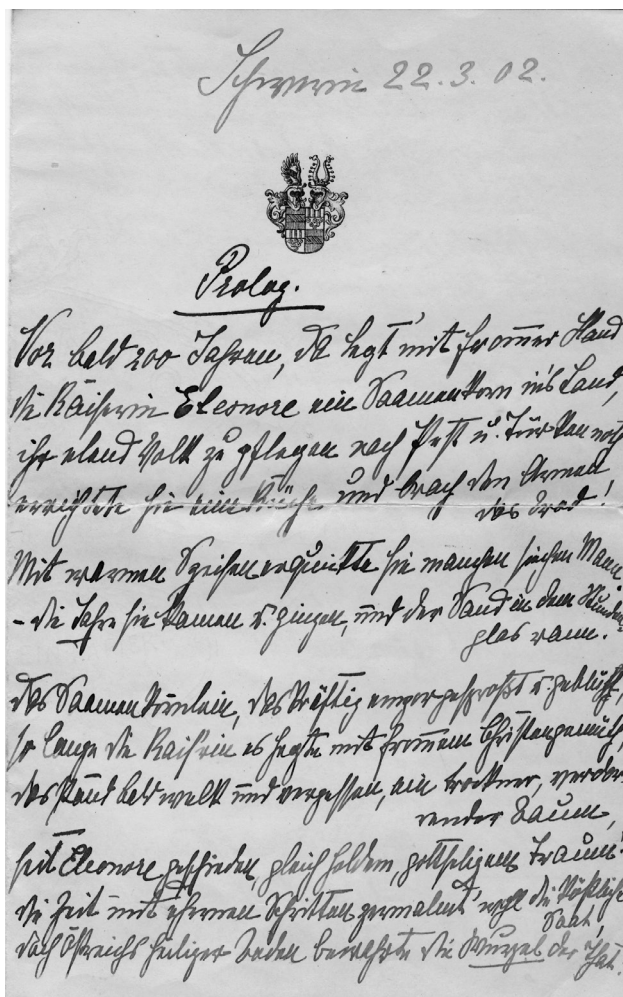 Schwerin 22.3.02.
Prolog.
Vor bald 200 Jahren, da legt' mit frommer Hand
die Kaiserin Eleonore ein Saamenkorn in's Land,
ihr elend Volk zu pflegen nach Pest u. Türkennoth
errichtete sie eine Küche und brach den Armen
das Brod!
Mit warmen Speisen erquickte sie manchen siechen Mann
– die Jahre sie kamen u. gingen, und der Sand in dem Stunden-
glas rann.
das Saamenkörnlein, das kräftig emporgesproßt u. geblüht,
so lange die Kais'rin es hegte mit frommem Christengemüth,
das stand bald welk und vergessen, ein trockner, verdor-
render Baum,
seit Eleonore geschieden, gleich holdem, gottseligem Traum!
die Zeit mit ehernen Schritten zermalmt' wohl die köstliche
Saat,
doch Östreichs heiliger Boden bewahrte die Wurzel der That.